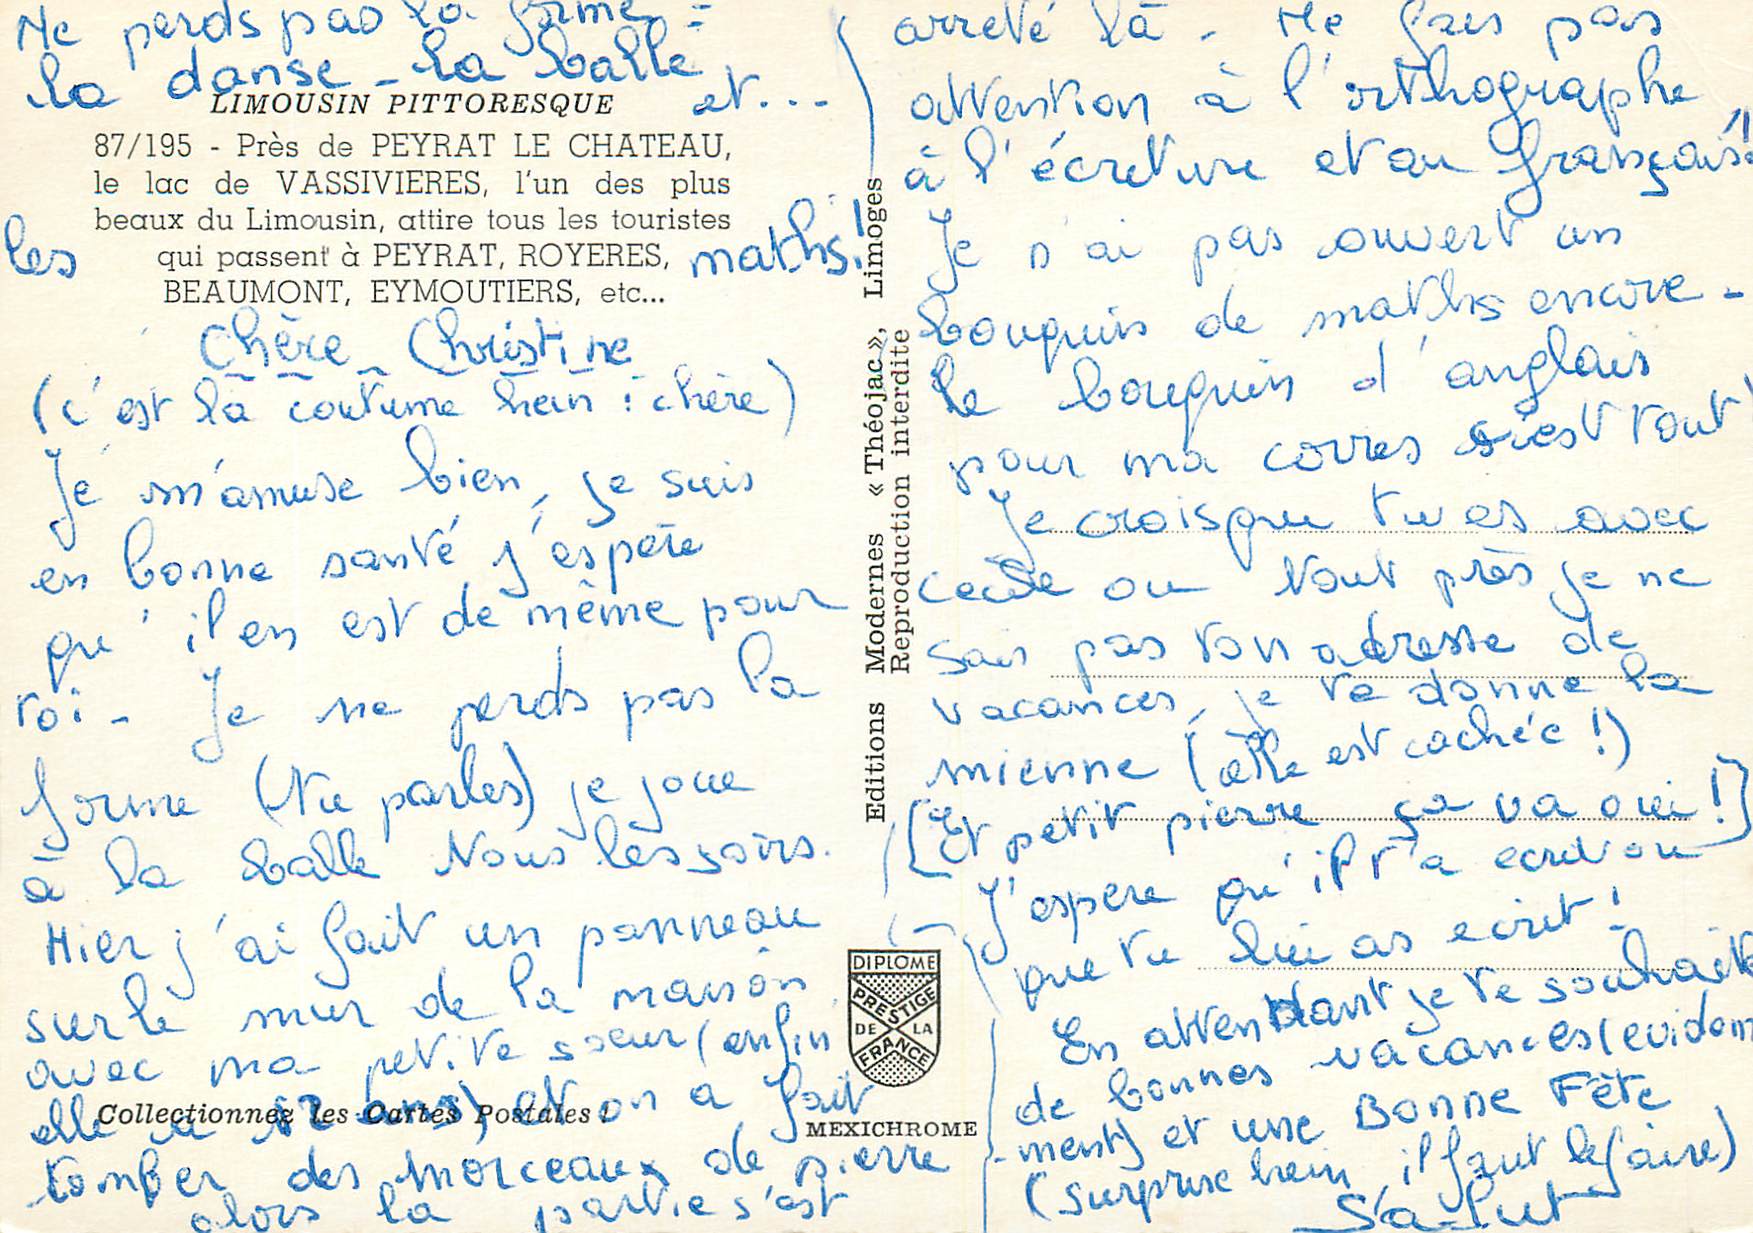 Ne perds pas la forme =
la danse - la balle
et...
LIMOUSIN PITTORESQUE
87/195 - Près de PEYRAT LE CHATEAU,
le lac de VASSIVIERES, l'un des plus
beaux du Limousin, attire tous les touristes
qui passent à PEYRAT, ROYERES,
BEAUMONT, EYMOUTIERS, etc...
les maths!
Chère Christine
(c'est la coutume hein : chère)
Je m'amuse bien, je suis
en bonne santé j'espère
qu'il en est de même pour
toi - Je ne perds pas la
forme (tu parles) je joue
à la balle tous les soirs.
Hier j'ai fait un panneau
sur le mur de la maison
avec ma petite soeur (enfin
elle a 12 ans) et on a fait
tomber des morceaux de pierre
alors la partie s'est
Collectionnez les Cartes Postales !
Editions Modernes « Théojac », Limoges
Reproduction interdite
DIPLOME
PRESTIGE
DE LA
FRANCE
MEXICHROME
arrêté là - Ne fais pas
attention à l'orthographe,
à l'écriture et au français!
Je n'ai pas ouvert un
bouquin de maths encore -
le bouquin d'anglais
pour ma corres c'est tout!
Je crois que tu es avec
Cécile ou tout près je ne
sais pas ton adresse de
vacances, je te donne la
mienne (elle est cachée!)
[Et petit pierre ça va oui!]
J'espère qu'il t'a ecrit ou
que tu lui as ecrit!
En attendant je te souhaite
de bonnes vacances (evidem
-ment) et une Bonne Fête
(surprise hein, il faut le faire)
Salut